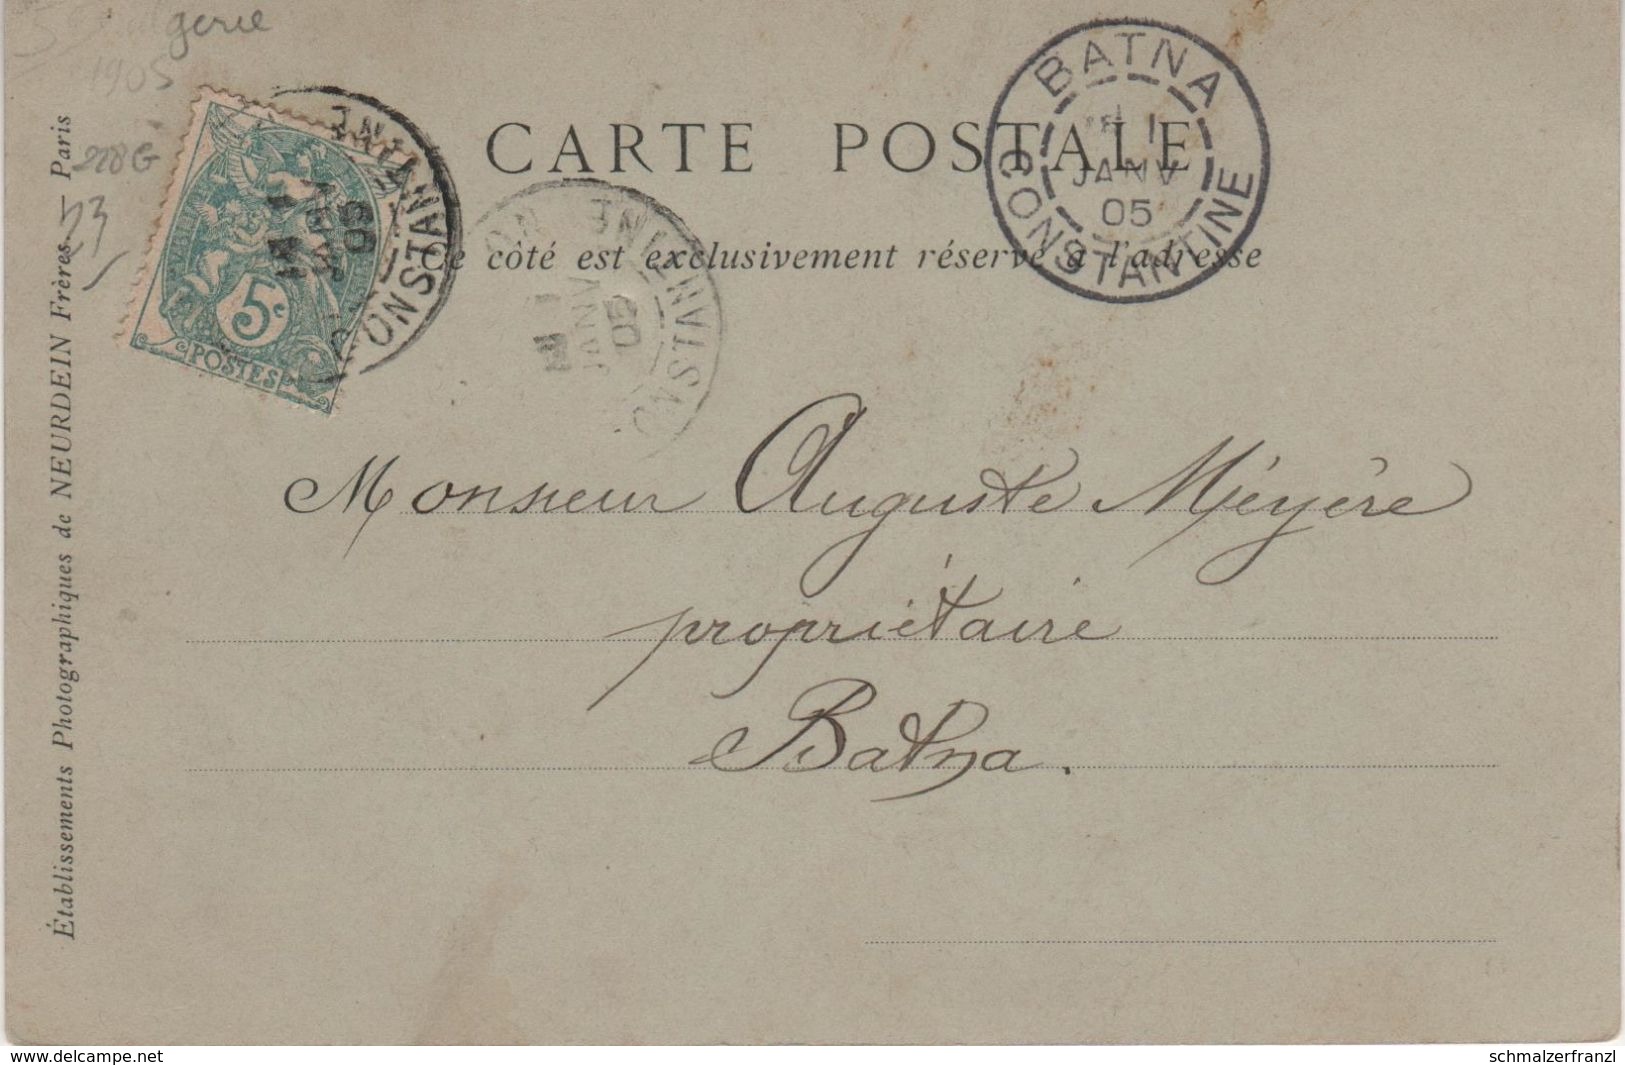 gerie
1905
228 G
CARTE POSTALE
Ce côté est exclusivement réservé à l'adresse
BATNA
1
JANV
05
CONSTANTINE
CONSTANTINE
JANV
05
5c
POSTES
CONSTANTINE
1
JANV
05
Établissements Photographiques de NEURDEIN Frères. — Paris
Monsieur Auguste Méyère
propriétaire
Batna.
www.delcampe.net
schmalzerfranzl